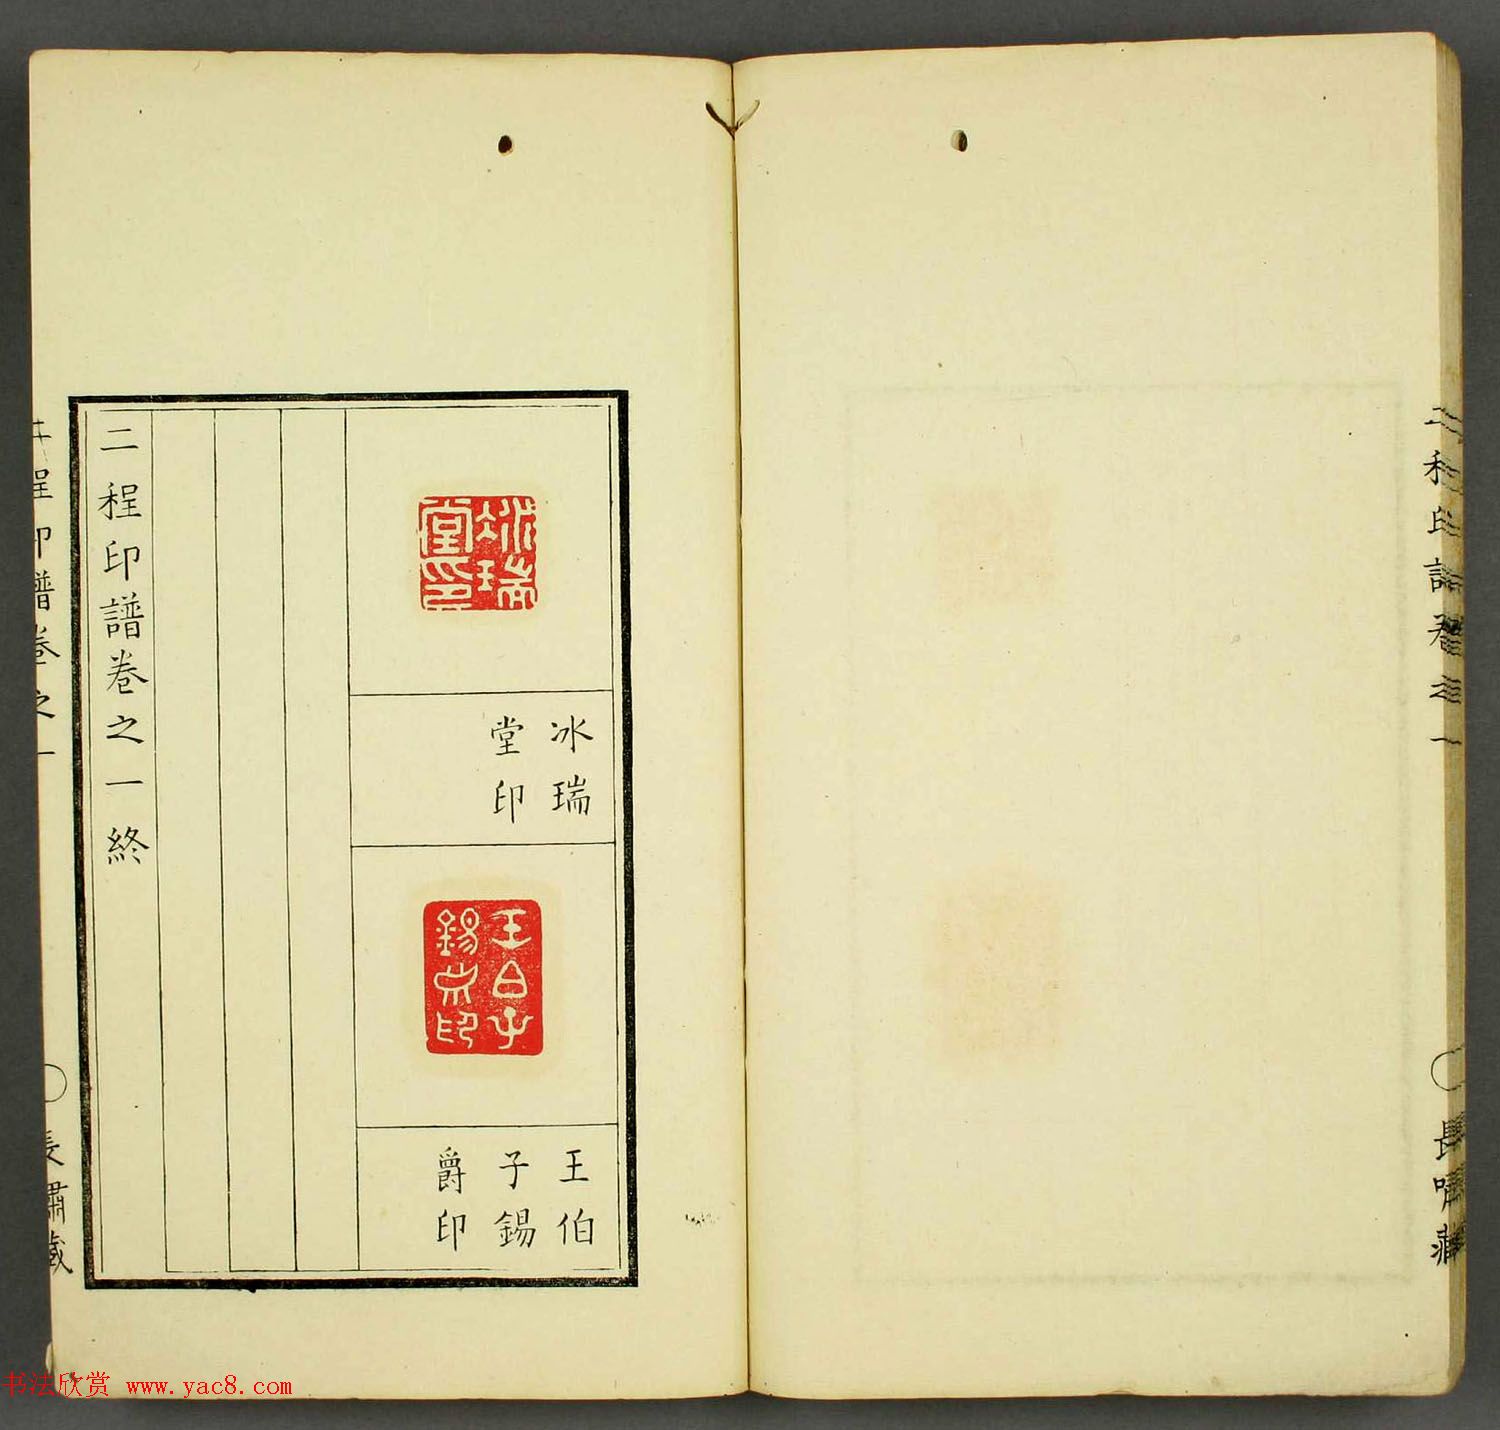 冰瑞堂印
冰瑞
堂印
王白子錫爵印
王伯
子錫
爵印
二程印譜卷之一終
二程印譜卷之一
長嘯藏
书法欣赏 www.yac8.com